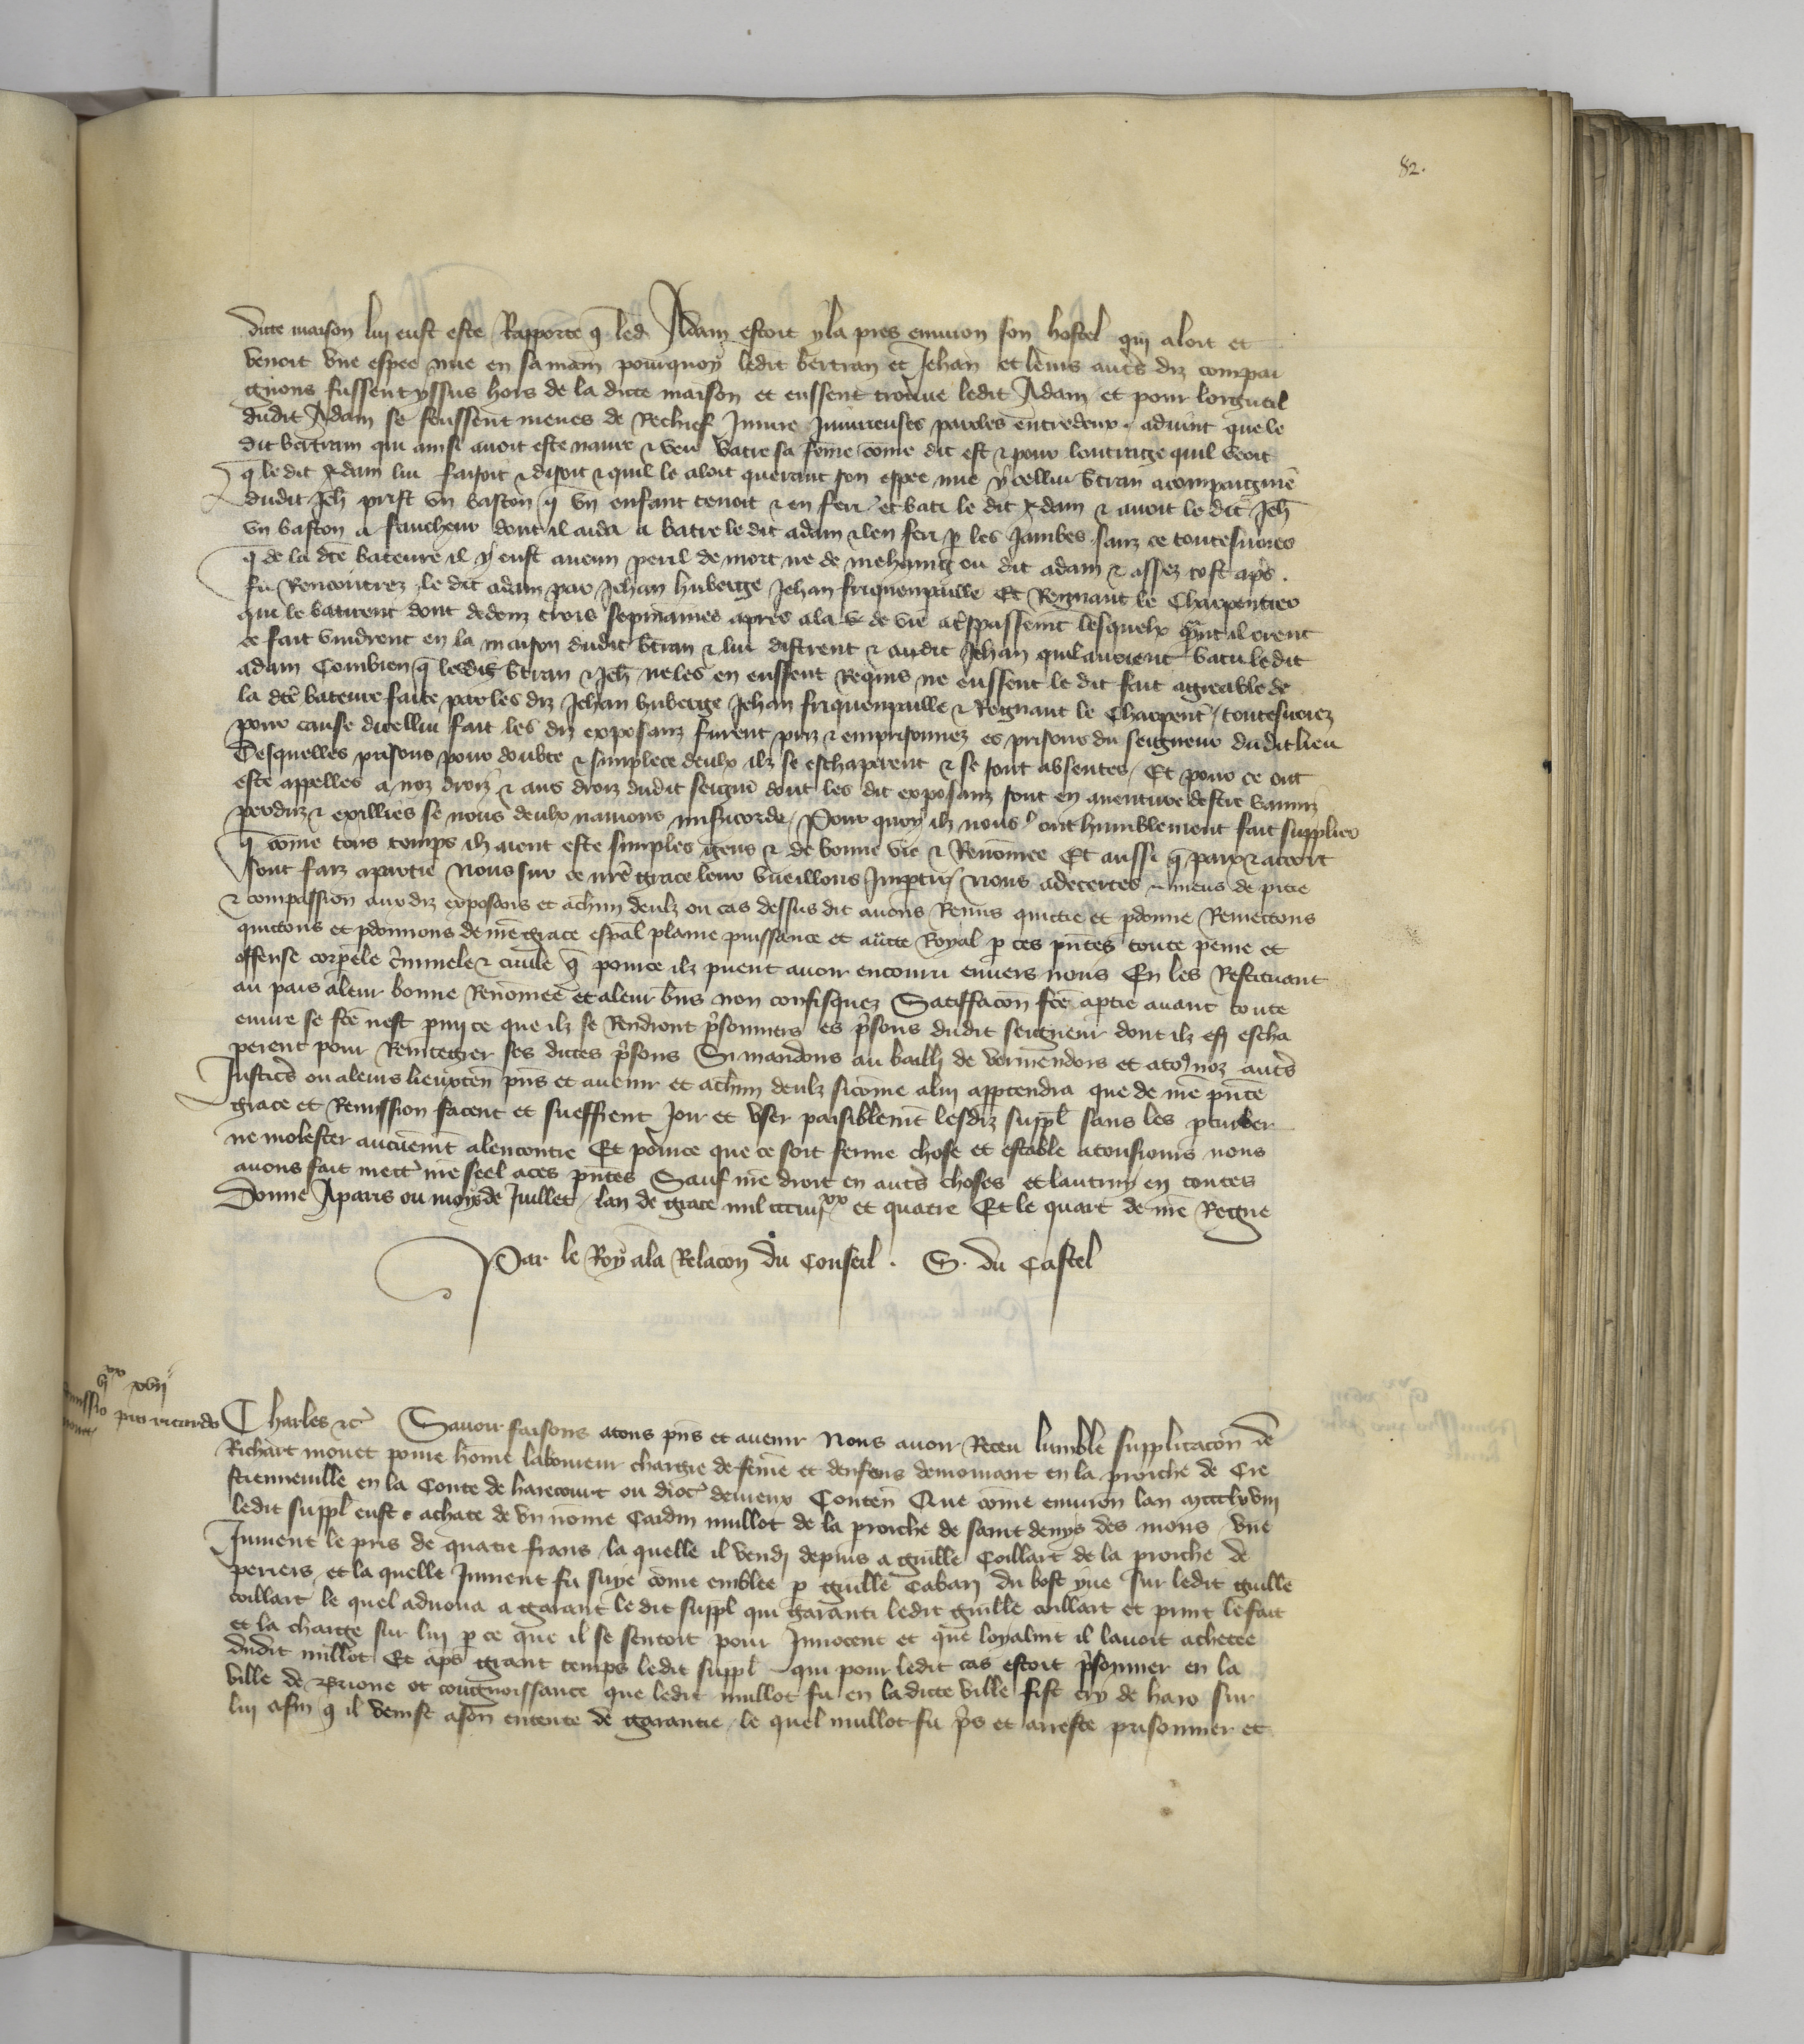 82.
dicte maison lui eust este Rapporte q̄ led. Adam estoit yla pres enuiron son hostel qui aloit et
venoit vne espee nue en sa main pourquoy ledit bertran et Jehan et leurs autr̄s diz compai
gnons fussent yssus hors de la dicte maison et eussent trouue ledit Adam et pour lorgueil
dudit Adam se feussent meues de Rechief Iniure Iniurieuses paroles entredeux. aduint que le
dit bertram qui ainsi auoit este naure & veu batre sa fem̄e com̄e dit est & pour loutraige quil veoit
q̄ le dit Adam lui faisoit & disoit & quil le aloit querant son espee nue ycellui b̄tran acompaignie
dudit Jeh̄ prist vn baston q̄ vn enfant tenoit & en feri et bati le dit Adam & auoit le dit Jeh̄
vn baston a faucheur dont il aida a batre le dit adam & len feri p les Jambes sanz ce toutesuoies
q̄ de la dc̄e bateure il y eust aucun peril de mort ne de mehaing ou dit adam & assez tost ap̄s.
fu Rencontrez le dit adam par Jehan huberge Jehan friquempaille Et Regnaut le Charpentier
qui le batirent dont dedenz trois sepmaines apres ala de vie a tr̄spassem̄t lesquelx quāt il orent
ce fait vindrent en la maison dudit b̄tran & lui distrent & audit Jehan quil auoient batu ledit
adam Combien q̄ lesdis b̄tran & Jeh̄ ne les en eussent Requis ne eussent le dit fait agreable de
la dc̄e bateure faite par les diz Jehan huberge Jehan friquempaille & Regnaut le Charpent̄ / toutesuoiez
pour cause dicellui fait les diz exposanz furent priz & emprisonnez es prisons du seigneur dudit lieu
Desquelles prisons pour doubte & simplece deulx ilz se eschaperent & se sont absentes / Et pour ce ont
este appelles a noz droiz & aus droiz dudit seign̄r dont les dit exposanz sont en auenture destre banniz
perduz & exilliés se nous deulx nauions mis̄icorde / Pour quoy ilz nous ont humblement fait supplier
q̄ com̄e tous temps ilz aient este simples gens & de bonne vie & Renom̄ee Et aussi q̄ paix & acort
sont faiz a partie Nous sur ce nr̄e grace leur vueillons Impartir / Nous adecertes meus de pitie
& compassion aux diz exposans et a ch̄un deulz ou cas dessus dit auons Remis quittie et p̄donne Remettons
quittons et p̄donnons de nr̄e grace esp̄al plaine puissance et auct̄e Royal p ces pn̄tes toute peine et
offense corpele c̄riminele & ciuile q̄ pour ce ilz puent auoir encouru enuers nous En les Restituant
au pais a leur bonne Renom̄ee et a leur bn̄s non confisquez Satiffacc̄on fc̄e a p̄tie auant toute
euure se fc̄e nest p my ce que ilz se Rendront p̄sonniers es p̄sons dudit seigneur dont ilz esch escha
perent pour Reintegrer ses dictes p̄sons Si mandons au bailli de vermendois et a to⁹ noz autr̄s
Justic̄s ou a leurs lieuxten̄ pn̄s et auenir et a ch̄un deulz sicom̄e a lui appartendra que de nr̄e pn̄te
grace et Remission facent et sueffrent Joir et vser paisiblem̄t lesdiz suppl̄ sans les p̄turber
ne molester aucunem̄t alencontre Et pour ce que ce soit ferme chose et estable a tousiours nous
auons fait mett̄ nr̄e seel a ces pn̄tes Sauf nr̄e droit en autr̄s choses et lautruy en toutes
Donne A paris ou moys de Juillet / lan de grace mil ccciiij^xx et quatre Et le quart de nr̄e Regne
Par le Roy a la Relacōn du Conseil. G. du Castel
vj^xx xvij
Remissio pro ricardo
mouet
Charles &c̄ Sauoir faisons a tous pn̄s et auenir Nous auoir Receu lumble supplicacōn de
Richart mouet poure hom̄e laboureur chargie de fem̄e et denfens demourant en la p̄roiche de Cre
stienneuille en la Conte de harecourt ou dioc̄ deureux Conten̄ Que com̄e enuiron lan mccclxviij
ledit suppl̄ eust achate de vn nom̄e Cardin mullot de la p̄roiche de saint denys des mons vne
Jument le pris de quatre frans la quelle il vendi depuis a guill̄e Coillart de la p̄roiche de
periers et la quelle Jument fu suye com̄e emblee p guill̄e Cabari du bosc yue sur ledit guill̄e
coillart le quel aduoua a garant le dit suppl̄ qui garanti ledit guill̄e coillart et print le fait
et la charge sur lui p ce que il se sentoit pour Innocent et que loyalm̄t il lauoit achetee
dudit mullot Et ap̄s grant temps ledit suppl̄ qui pour ledit cas estoit p̄sonnier en la
ville de Brione ot congnoissance que ledit mullot fu en ladicte ville fist cry de haro sur
lui afin q̄ il venist a son entente de garantie / le quel mullot fu p̄s et arreste prisonnier et